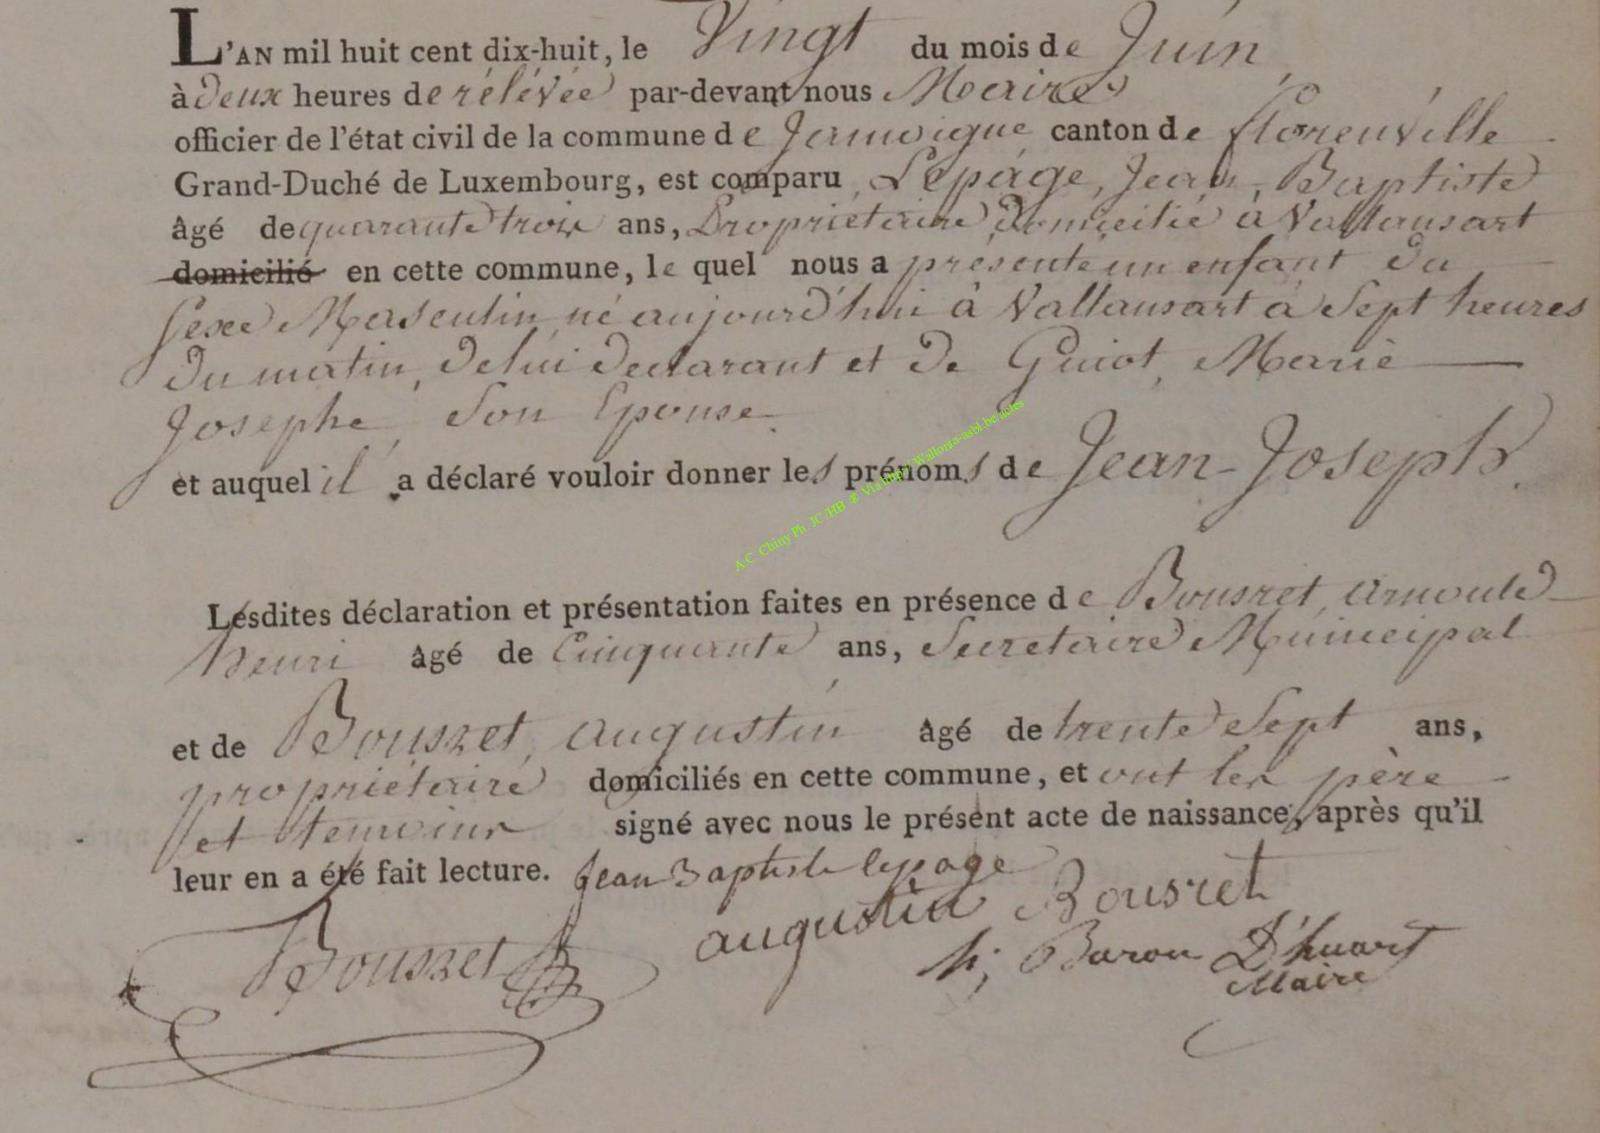 L'AN mil huit cent dix-huit, le Vingt du mois de Juin
à deux heures de rélévée par-devant nous Maire
officier de l'état civil de la commune de Jamoigne canton de florenville
Grand-Duché de Luxembourg, est comparu Lepage, Jean, Baptiste
âgé de quarante trois ans, Propriétaire domicilié à Vallansart
domicilié en cette commune, le quel nous a présenté un enfant du
Sexe Masculin né aujourd'hui à Vallansart à Sept heures
du matin, de lui declarant et de Guiot, Marie
Josephe, Son Epouse.
et auquel il a déclaré vouloir donner les prénoms de Jean-Joseph.
Lesdites déclaration et présentation faites en présence de Bousret, arnould
henri âgé de Cinquante ans, Secretaire Municipal
et de Bousret, augustin âgé de trente Sept ans,
propriétaire domiciliés en cette commune, et ont les père
et temoins signé avec nous le présent acte de naissance, après qu'il
leur en a été fait lecture. Jean Baptiste lepage
augustin Bousret
Bousret
h; Baron D'huart
Maire
A.C. Chiny Ph JC/HB & Wallonia-asbl.be actes